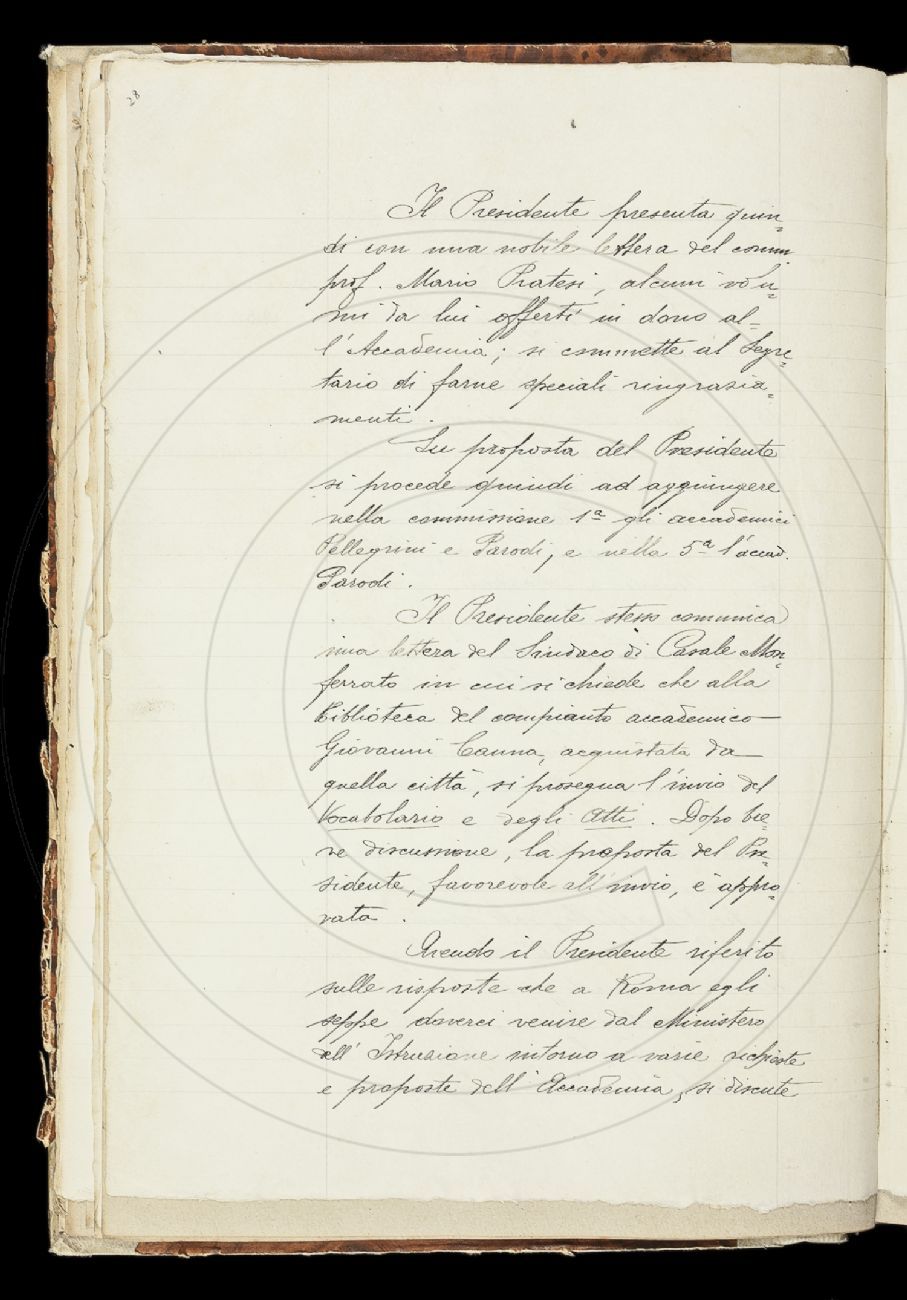 28
Il Presidente presenta quin=
di con una nobile lettera del comm
prof. Mario Pratesi, alcuni volu=
mi da lui offerti in dono al=
l'Accademia; si commette al Segre=
tario di farne speciali ringrazia=
menti.
Su proposta del Presidente
si procede quindi ad aggiungere
nella commissione 1ª gli accademici
Pellegrini e Parodi, e nella 5ª l'accad.
Parodi.
Il Presidente stesso comunica
una lettera del Sindaco di Casale Mon=
ferrato in cui si chiede che alla
Biblioteca del compianto accademico
Giovanni Canna, acquistata da
quella città, si prosegua l'invio del
Vocabolario e degli Atti. Dopo bre=
ve discussione, la proposta del Pre=
sidente, favorevole all'invio, è appro=
vata.
Avendo il Presidente riferito
sulle risposte che a Roma egli
seppe doverci venire dal Ministero
dell'Istruzione intorno a varie richieste
e proposte dell'Accademia, si discute